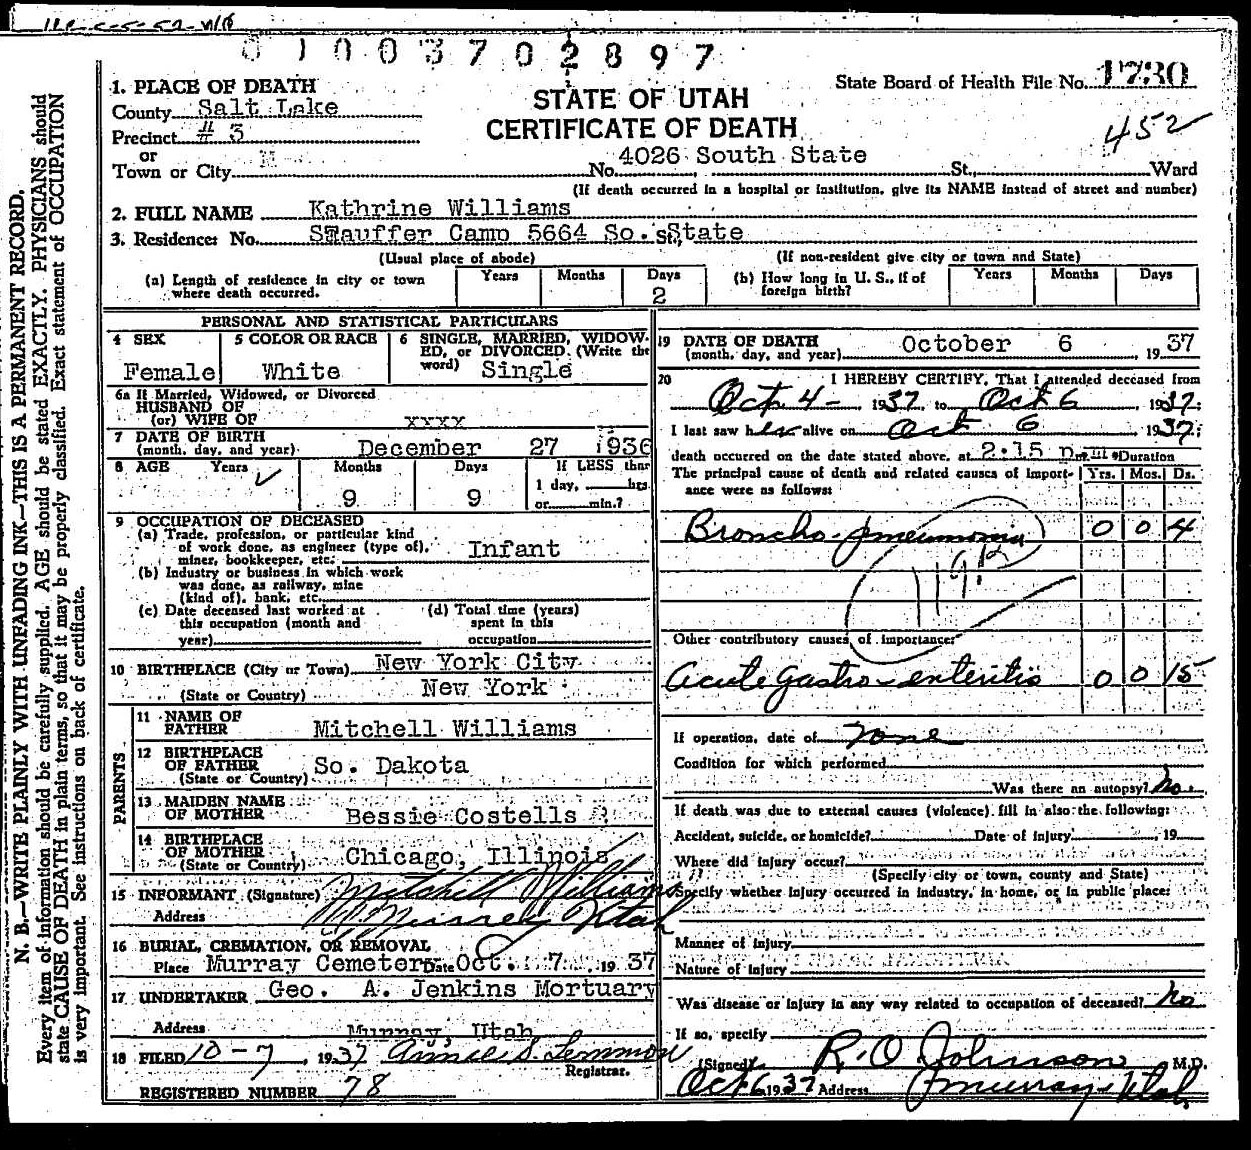 01003702897
1. PLACE OF DEATH
County Salt Lake
Precinct # 3
or
Town or City
STATE OF UTAH
CERTIFICATE OF DEATH
State Board of Health File No. 1730
452
No. 4026 South State St., Ward
(If death occurred in a hospital or institution, give its NAME instead of street and number)
2. FULL NAME Kathrine Williams
3. Residence: No. Stauffer Camp 5664 So. State St.,
(Usual place of abode) (If non-resident give city or town and State)
(a) Length of residence in city or town where death occurred. Years Months Days 2
(b) How long in U. S., if of foreign birth? Years Months Days
PERSONAL AND STATISTICAL PARTICULARS
4 SEX Female
5 COLOR OR RACE White
6 SINGLE, MARRIED, WIDOWED, or DIVORCED. (Write the word) Single
6a If Married, Widowed, or Divorced
HUSBAND OF
(or) WIFE OF xxxx
7 DATE OF BIRTH
(month, day, and year) December 27 1936
8 AGE Years Months 9 Days 9 If LESS than 1 day, hrs. or min.?
9 OCCUPATION OF DECEASED
(a) Trade, profession, or particular kind
of work done, as engineer (type of),
miner, bookkeeper, etc. Infant
(b) Industry or business in which work
was done, as railway, mine
(kind of), bank, etc.
(c) Date deceased last worked at
this occupation (month and
year)
(d) Total time (years)
spent in this
occupation
10 BIRTHPLACE (City or Town) New York City
(State or Country) New York
PARENTS
11 NAME OF
FATHER Mitchell Williams
12 BIRTHPLACE
OF FATHER So. Dakota
(State or Country)
13 MAIDEN NAME
OF MOTHER Bessie Costells
14 BIRTHPLACE
OF MOTHER Chicago, Illinois
(State or Country)
15 INFORMANT (Signature) Mitchell Williams
Address Murray Utah
16 BURIAL, CREMATION, OR REMOVAL
Place Murray Cemetery Date Oct. 7 19 37
17 UNDERTAKER Geo. A. Jenkins Mortuary
Address Murray, Utah
18 FILED 10-7, 1937 Annie S. Lemmon
Registrar.
REGISTERED NUMBER 78
19 DATE OF DEATH
(month, day, and year) October 6, 1937
20 I HEREBY CERTIFY, That I attended deceased from
Oct 4-, 1937, to Oct 6, 1937;
I last saw her alive on Oct 6 1937;
death occurred on the date stated above, at 2:15 m. *Duration
The principal cause of death and related causes of importance were as follows: Yrs. Mos. Ds.
Broncho-pneumonia 0 0 4
Other contributory causes of importance:
Acute gastro-enteritis 0 0 15
If operation, date of none
Condition for which performed
Was there an autopsy? no
If death was due to external causes (violence) fill in also the following:
Accident, suicide, or homicide? Date of injury, 19
Where did injury occur?
(Specify city or town, county and State)
Specify whether injury occurred in industry, in home, or in public place:
Manner of injury
Nature of injury
Was disease or injury in any way related to occupation of deceased? no
If so, specify
(Signed) R. O. Johnson M.D.
Oct 6 1937 Address Murray Utah
N. B.—WRITE PLAINLY WITH UNFADING INK—THIS IS A PERMANENT RECORD.
Every item of information should be carefully supplied. AGE should be stated EXACTLY. PHYSICIANS should
state CAUSE OF DEATH in plain terms, so that it may be properly classified. Exact statement of OCCUPATION
is very important. See instructions on back of certificate.